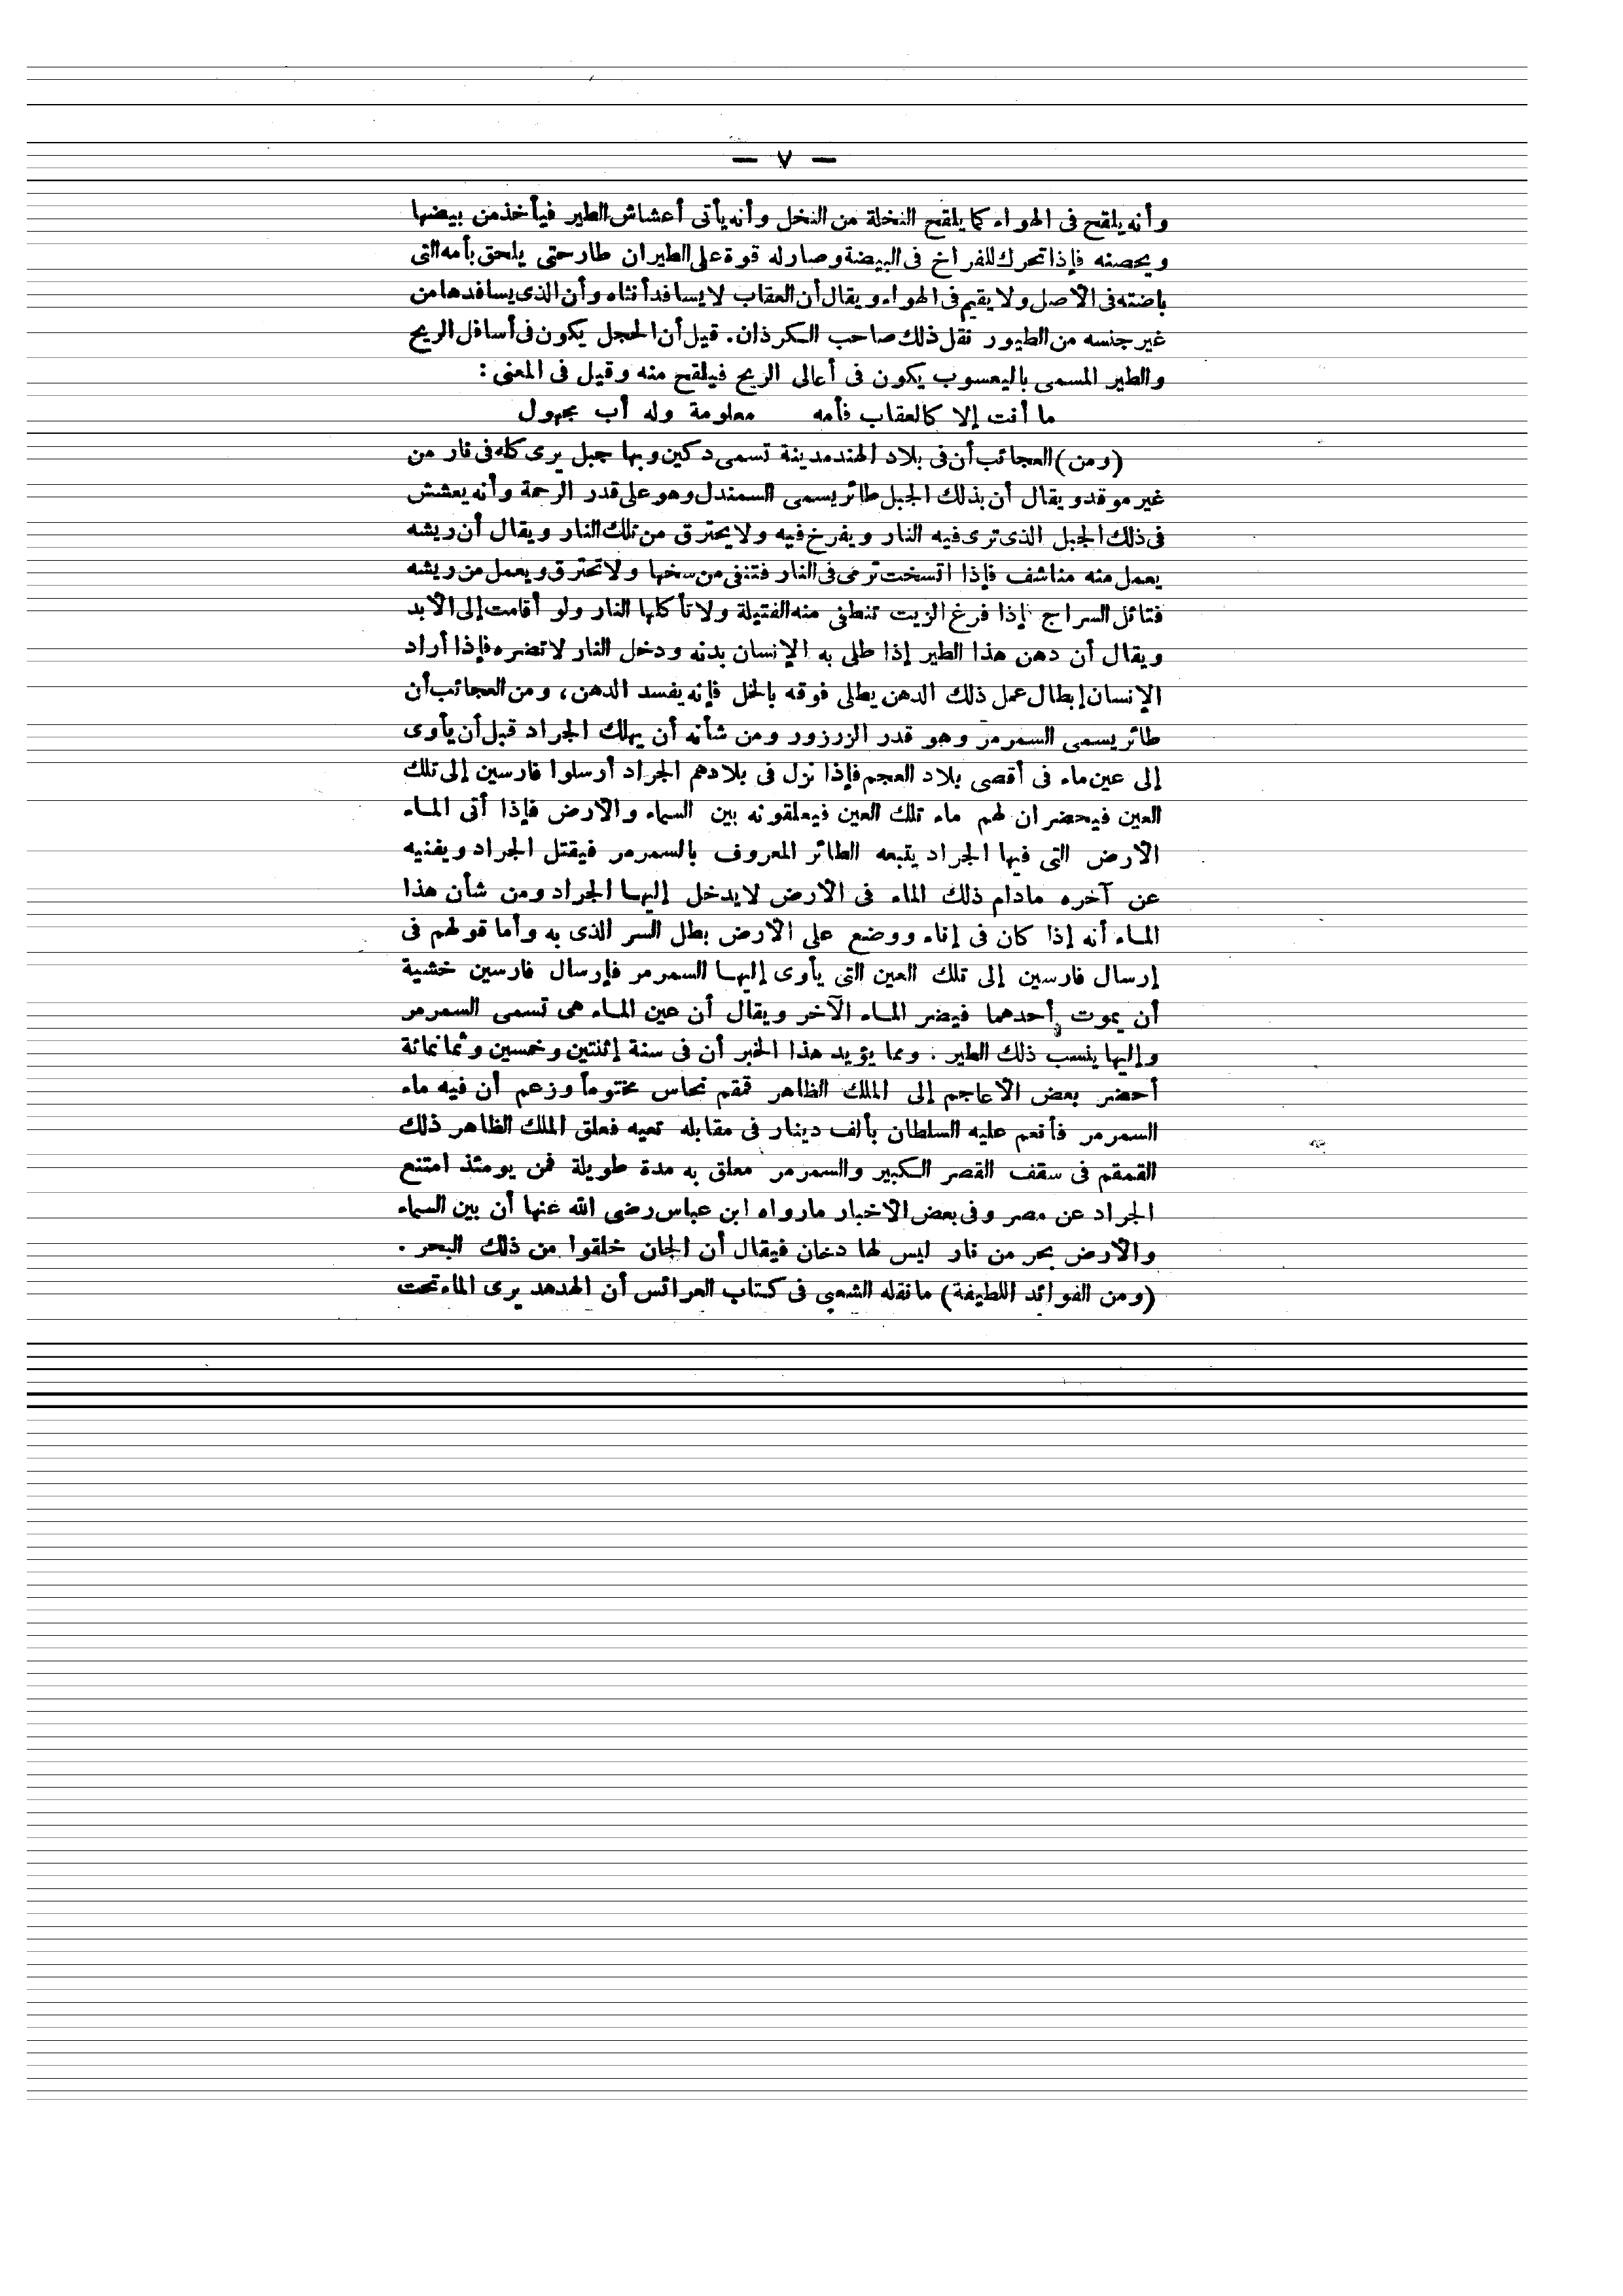 — ٧ —
وأنه يلقح فى الهواء كما يلقح النخلة من النخل وأنه يأتى أعشاش الطير فيأخذ من بيضها
ويحصنه فإذا تحرك للفراخ فى البيضة وصار له قوة على الطيران طار حتى يلحق بأمه التى
باضته فى الأصل ولا يقيم فى الهواء ويقال أن العقاب لا يسافد أنثاه وأن الذى يسافدها من
غير جنسه من الطيور نقل ذلك صاحب السكرذان. قيل أن الحجل يكون فى أسافل الريح
والطير المسمى باليعسوب يكون فى أعالى الريح فيلقح منه وقيل فى المعنى :
ما أنت إلا كالعقاب فأمه معلومة وله أب مجهول
(ومن) العجائب أن فى بلاد الهند مدينة تسمى دكين وبها جبل يرى كله فى نار من
غير موقد ويقال أن بذلك الجبل طائر يسمى السمندل وهو على قدر الرحمة وأنه يعشش
فى ذلك الجبل الذى ترى فيه النار ويفرخ فيه ولا يحترق من تلك النار ويقال أن ريشه
يعمل منه مناشف فإذا اتسخت ترمى فى النار فتنفى من سخها ولا تحترق ويعمل من ريشه
فتائل السراج إذا فرغ الزيت تنطفى منه الفتيلة ولا تأكلها النار ولو أقامت إلى الأبد
ويقال أن دهن هذا الطير إذا طلى به الإنسان بدنه ودخل النار لا تضره فإذا أراد
الإنسان إبطال عمل ذلك الدهن يطلى فوقه بالخل فإنه يفسد الدهن، ومن العجائب أن
طائر يسمى السمرمر وهو قدر الزرزور ومن شأنه أن يهلك الجراد قبل أن يأوى
إلى عين ماء فى أقصى بلاد العجم فإذا نزل فى بلادهم الجراد أرسلوا فارسين إلى تلك
العين فيحضران لهم ماء تلك العين فيعلقونه بين السماء والأرض فإذا أتى الماء
الأرض التى فيها الجراد يتبعه الطائر المعروف بالسمرمر فيقتل الجراد ويفنيه
عن آخره مادام ذلك الماء فى الأرض لا يدخل إليها الجراد ومن شأن هذا
الماء أنه إذا كان فى إناء ووضع على الأرض بطل السر الذى به وأما قولهم فى
إرسال فارسين إلى تلك العين التى يأوى إليها السمرمر فإرسال فارسين خشية
أن يموت أحدهما فيضر الماء الآخر ويقال أن عين الماء هى تسمى السمرمر
وإليها ينسب ذلك الطير : ومما يؤيد هذا الخبر أن فى سنة إثنتين وخمسين وثمانمائة
أحضر بعض الأعاجم إلى الملك الظاهر قمقم نحاس مختوماً وزعم أن فيه ماء
السمرمر فأنعم عليه السلطان بألف دينار فى مقابله تعبه فعلق الملك الظاهر ذلك
القمقم فى سقف القصر الكبير والسمرمر معلق به مدة طويلة فمن يومئذ امتنع
الجراد عن مصر وفى بعض الأخبار مارواه ابن عباس رضى الله عنها أن بين السماء
والأرض بحر من نار ليس لها دخان فيقال أن الجان خلقوا من ذلك البحر .
(ومن الفوائد اللطيفة) مانقله الشعبى فى كتاب العرائس أن الهدهد يرى الماء تحت